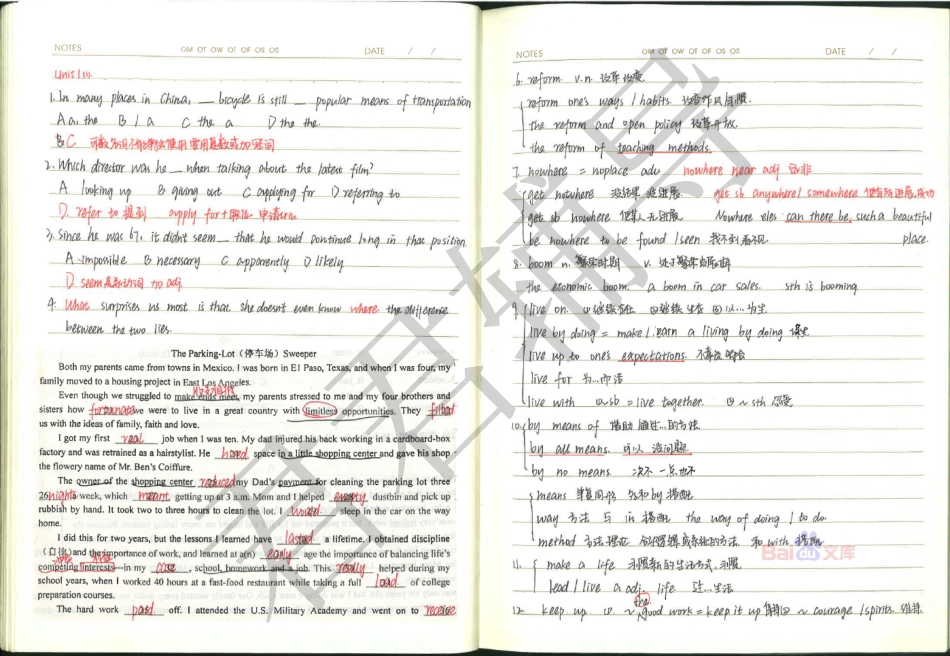 NOTES
OM OT OW OT OF OS OS
DATE / /
Unit 1
1. In many places in China, __ bicycle is still __ popular means of transportation
A a, the B / a C the a D the the.
C
2. Which director was he __ when talking about the latest film?
A looking up B giving out C applying for D referring to
D. refer to 提到 apply for + 职位 申请
3. Since he was 67, it didn't seem __ that he would continue long in that position.
A impossible B necessary C apparently D likely
D seem是系动词 加 adj.
4. What surprises us most is that she doesn't even know where the difference
between the two lies.
The Parking-Lot（停车场）Sweeper
Both my parents came from towns in Mexico. I was born in El Paso, Texas, and when I was four, my
family moved to a housing project in East Los Angeles.
Even though we struggled to make ends meet, my parents stressed to me and my four brothers and
sisters how fortunate we were to live in a great country with limitless opportunities. They filled
us with the ideas of family, faith and love.
I got my first real job when I was ten. My dad injured his back working in a cardboard-box
factory and was retrained as a hairstylist. He space in a little shopping center and gave his shop
the flowery name of Mr. Ben's Coiffure.
The owner of the shopping center reduced my Dad's payment for cleaning the parking lot three
26 nights a week, which meant getting up at 3 am. Mom and I helped empty dustbin and pick up
rubbish by hand. It took two to three hours to clean the lot. I would sleep in the car on the way
home.
I did this for two years, but the lessons I learned have lasted a lifetime. I obtained discipline
（自律）and the importance of work, and learned at a(n) early age the importance of balancing life's
competing interests—in my case, school, homework and a job. This really helped during my
school years, when I worked 40 hours at a fast-food restaurant while taking a full load of college
preparation courses.
The hard work paid off. I attended the U.S. Military Academy and went on to receive
NOTES
OM OT OW OT OF OS OS
DATE / /
6. reform. v. n. 改革 改变
reform one's ways / habits. 改变作风 习惯.
the reform and open policy 改革开放.
the reform of teaching methods.
7. nowhere = noplace adv nowhere near adj 远非
get nowhere 没结果 没进展. get sb anywhere / somewhere 使有所进展,成功
get sb nowhere 使某人无进展. Nowhere else can there be such a beautiful
place.
be nowhere to be found / seen 找不到 看不见
8. boom n. 繁荣时期 v. 处于繁荣时期
the economic boom. a boom in car sales. sth is booming
9. live on. ①继续存在 ②继续生存 ③以...为生
live by doing = make / earn a living by doing 谋生
live up to one's expectations. 不辜负
live for 为...而活
live with ①~sb = live together. ②~ sth 忍受
10. by means of 借助 通过...的方法
by all means. 可以 没问题.
by no means. 决不 一点也不
means 单复同形 与 by 搭配
way 方法 与 in 搭配 the way of doing / to do.
method 方法 理论 和 with 搭配
11. make a life
lead / live a adj. life 过...生活
12. keep up. ① ~ the good work = keep it up ② ~ courage / spirits. 维持
君君辅导
Bai du 文库